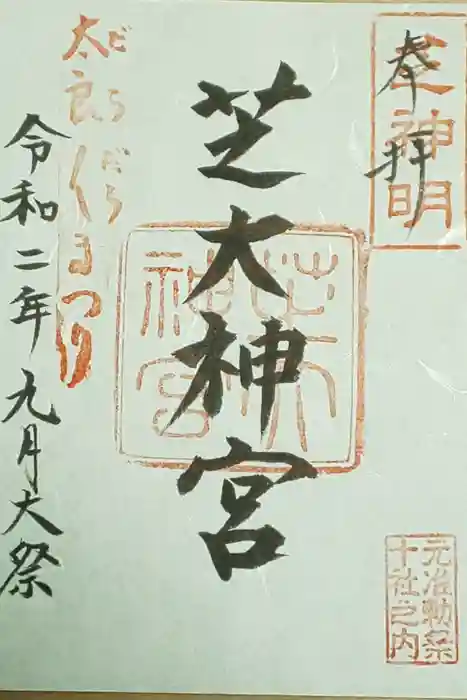 奉拝
芝神明
芝大神宮
芝大神宮
元准勅祭
十社之内
だらだら
太良〱まつり
令和二年九月大祭